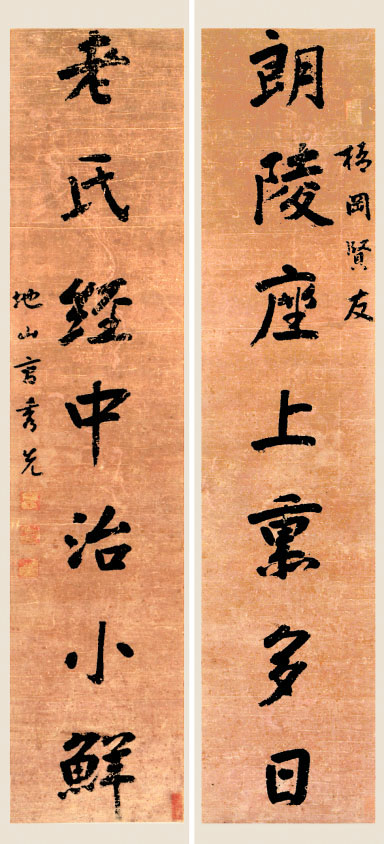 朗陵座上多日
岡賢友
老氏經中治小鮮
地山曹秀先